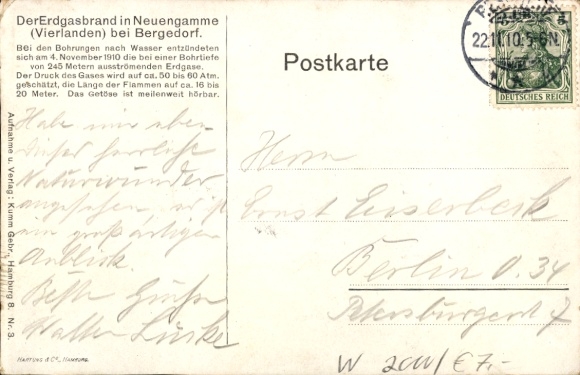 Der Erdgasbrand in Neuengamme
(Vierlanden) bei Bergedorf.
Bei den Bohrungen nach Wasser entzündeten
sich am 4. November 1910 die bei einer Bohrtiefe
von 245 Metern ausströmenden Erdgase.
Der Druck des Gases wird auf ca. 50 bis 60 Atm.
geschätzt, die Länge der Flammen auf ca. 16 bis
20 Meter. Das Getöse ist meilenweit hörbar.
Postkarte
22.11.10. 5-6N.
DEUTSCHES REICH
Habe mir eben
dieses herrliche
Naturwunder
angesehen, es ist
ein großartiger
Anblick.
Beste Grüße
Walter
Herrn
Ernst Eiserbeck
Berlin O. 34
Petersburgerst 7
Aufnahme u. Verlag: Kumm Gebr., Hamburg 8. Nr. 3.
Hartung & Co., Hamburg
W 2011/ € 7,-